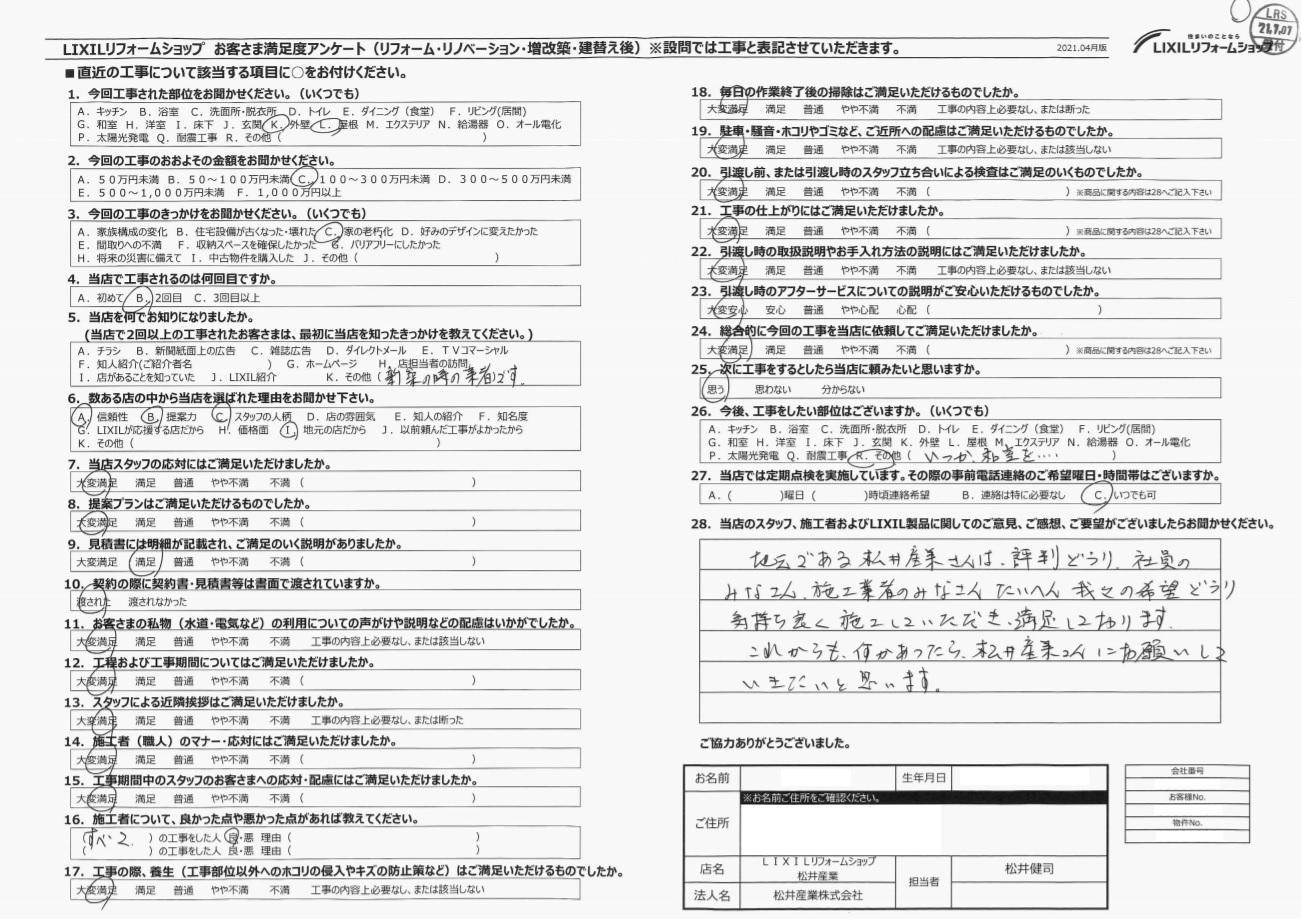 LIXILリフォームショップ お客さま満足度アンケート（リフォーム・リノベーション・増改築・建替え後）※設問では工事と表記させていただきます。
2021.04月版
住まいのことなら
LIXILリフォームショップ
LRS
21.7.07
受付
■直近の工事について該当する項目に○をお付けください。
1．今回工事された部位をお聞かせください。（いくつでも）
A．キッチン B．浴室 C．洗面所・脱衣所 D．トイレ E．ダイニング（食堂） F．リビング(居間)
G．和室 H．洋室 I．床下 J．玄関 K．外壁 L．屋根 M．エクステリア N．給湯器 O．オール電化
P．太陽光発電 Q．耐震工事 R．その他（ ）
2．今回の工事のおおよその金額をお聞かせください。
A．50万円未満 B．50～100万円未満 C．100～300万円未満 D．300～500万円未満
E．500～1,000万円未満 F．1,000万円以上
3．今回の工事のきっかけをお聞かせください。（いくつでも）
A．家族構成の変化 B．住宅設備が古くなった・壊れた C．家の老朽化 D．好みのデザインに変えたかった
E．間取りへの不満 F．収納スペースを確保したかった G．バリアフリーにしたかった
H．将来の災害に備えて I．中古物件を購入した J．その他（ ）
4．当店で工事されるのは何回目ですか。
A．初めて B．2回目 C．3回目以上
5．当店を何でお知りになりましたか。
（当店で2回以上の工事されたお客さまは、最初に当店を知ったきっかけを教えてください。）
A．チラシ B．新聞紙面上の広告 C．雑誌広告 D．ダイレクトメール E．TVコマーシャル
F．知人紹介(ご紹介者名 ) G．ホームページ H．店担当者の訪問
I．店があることを知っていた J．LIXIL紹介 K．その他（新築の時の業者）です。
6．数ある店の中から当店を選ばれた理由をお聞かせ下さい。
A．信頼性 B．提案力 C．スタッフの人柄 D．店の雰囲気 E．知人の紹介 F．知名度
G．LIXILが応援する店だから H．価格面 I．地元の店だから J．以前頼んだ工事がよかったから
K．その他（ ）
7．当店スタッフの応対にはご満足いただけましたか。
大変満足 満足 普通 やや不満 不満（ ）
8．提案プランはご満足いただけるものでしたか。
大変満足 満足 普通 やや不満 不満（ ）
9．見積書には明細が記載され、ご満足のいく説明がありましたか。
大変満足 満足 普通 やや不満 不満（ ）
10．契約の際に契約書・見積書等は書面で渡されていますか。
渡された 渡されなかった
11．お客さまの私物（水道・電気など）の利用についての声がけや説明などの配慮はいかがでしたか。
大変満足 満足 普通 やや不満 不満 工事の内容上必要なし、または該当しない
12．工程および工事期間についてはご満足いただけましたか。
大変満足 満足 普通 やや不満 不満（ ）
13．スタッフによる近隣挨拶はご満足いただけましたか。
大変満足 満足 普通 やや不満 不満 工事の内容上必要なし、または断った
14．施工者（職人）のマナー・応対にはご満足いただけましたか。
大変満足 満足 普通 やや不満 不満（ ）
15．工事期間中のスタッフのお客さまへの応対・配慮にはご満足いただけましたか。
大変満足 満足 普通 やや不満 不満（ ）
16．施工者について、良かった点や悪かった点があれば教えてください。
（すべて ）の工事をした人 良・悪 理由（ ）
（ ）の工事をした人 良・悪 理由（ ）
17．工事の際、養生（工事部位以外へのホコリの侵入やキズの防止策など）はご満足いただけるものでしたか。
大変満足 満足 普通 やや不満 不満 工事の内容上必要なし、または該当しない
18．毎日の作業終了後の掃除はご満足いただけるものでしたか。
大変満足 満足 普通 やや不満 不満 工事の内容上必要なし、または断った
19．駐車・騒音・ホコリやゴミなど、ご近所への配慮はご満足いただけるものでしたか。
大変満足 満足 普通 やや不満 不満 工事の内容上必要なし、または該当しない
20．引渡し前、または引渡し時のスタッフ立ち合いによる検査はご満足のいくものでしたか。
大変満足 満足 普通 やや不満 不満（ ）※商品に関する内容は28へご記入下さい
21．工事の仕上がりにはご満足いただけましたか。
大変満足 満足 普通 やや不満 不満（ ）※商品に関する内容は28へご記入下さい
22．引渡し時の取扱説明やお手入れ方法の説明にはご満足いただけましたか。
大変満足 満足 普通 やや不満 不満 工事の内容上必要なし、または該当しない
23．引渡し時のアフターサービスについての説明がご安心いただけるものでしたか。
大変安心 安心 普通 やや心配 心配（ ）
24．総合的に今回の工事を当店に依頼してご満足いただけましたか。
大変満足 満足 普通 やや不満 不満（ ）※商品に関する内容は28へご記入下さい
25．次に工事をするとしたら当店に頼みたいと思いますか。
思う 思わない 分からない
26．今後、工事をしたい部位はございますか。（いくつでも）
A．キッチン B．浴室 C．洗面所・脱衣所 D．トイレ E．ダイニング（食堂） F．リビング(居間)
G．和室 H．洋室 I．床下 J．玄関 K．外壁 L．屋根 M．エクステリア N．給湯器 O．オール電化
P．太陽光発電 Q．耐震工事 R．その他（ いつか、和室を・・・・ ）
27．当店では定期点検を実施しています。その際の事前電話連絡のご希望曜日・時間帯はございますか。
A．（ ）曜日（ ）時頃連絡希望 B．連絡は特に必要なし C．いつでも可
28．当店のスタッフ、施工者およびLIXIL製品に関してのご意見、ご感想、ご要望がございましたらお聞かせください。
地元である松井産業さんは、評判どうり、社員の
みなさん、施工業者のみなさん たいへん 我々の希望どうり
気持ち良く施工していただき、満足しております。
これからも、何かあったら、松井産業さんにお願いして
いきたいと思います。
ご協力ありがとうございました。
お名前 生年月日
※お名前ご住所をご確認ください。
ご住所
店名 LIXILリフォームショップ 松井産業 担当者 松井健司
法人名 松井産業株式会社
会社番号
お客様No.
物件No.